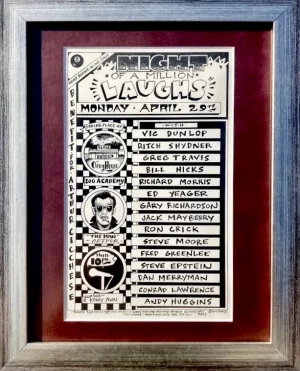 NIGHT
OF A MILLION
LAUGHS
MONDAY · APRIL 29TH
BENEFIT FOR ARTHUR CICCHESE
WITH
VIC DUNLOP
RITCH SHYDNER
GREG TRAVIS
BILL HICKS
RICHARD MORRIS
ED YEAGER
GARY RICHARDSON
JACK MAYBERRY
RON CRICK
STEVE MOORE
FRED GREENLEE
STEVE EPSTEIN
DAN MERRYMAN
CONRAD LAWRENCE
ANDY HUGGINS
ACADEMY
"THE MAN"